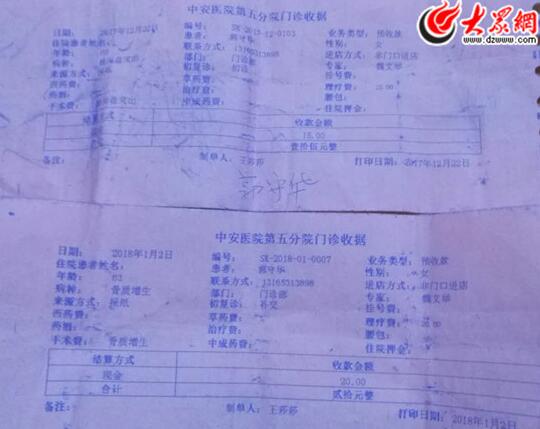 大众网
www.dzwww.com
中安医院第五分院门诊收据
日期: 2017年12月22日 编号: 业务类型: 预收款
住院患者姓名: 患者: 郭守华 性别: 女
年龄: 联系方式: 13165313898 进店方式: 非门口进店
病种: 部门: 门诊部 专家: 魏文华
来源方式: 初复诊: 初诊 挂号费:
西药费: 草药费: 理疗费:
药酒: 治疗费: 腰包:
手术费: 中成药费: 住院押金:
结算方式 收款金额
15.00
壹拾伍元整
备注: 制单人: 王莎莎 打印日期: 2017年12月22日
郭守华
中安医院第五分院门诊收据
日期: 2018年1月2日 编号: SK-2018-01-0007 业务类型: 预收款
住院患者姓名: 患者: 郭守华 性别: 女
年龄: 联系方式: 13165313898 进店方式: 非门口进店
病种: 骨质增生 部门: 门诊部 专家: 魏文华
来源方式: 报纸 初复诊: 补交 挂号费:
西药费: 草药费: 理疗费: 20.00
药酒: 治疗费: 腰包:
手术费: 骨质增生 中成药费: 住院押金:
结算方式 收款金额
现金 20.00
合计 贰拾元整
备注: 制单人: 王莎莎 打印日期: 2018年1月2日